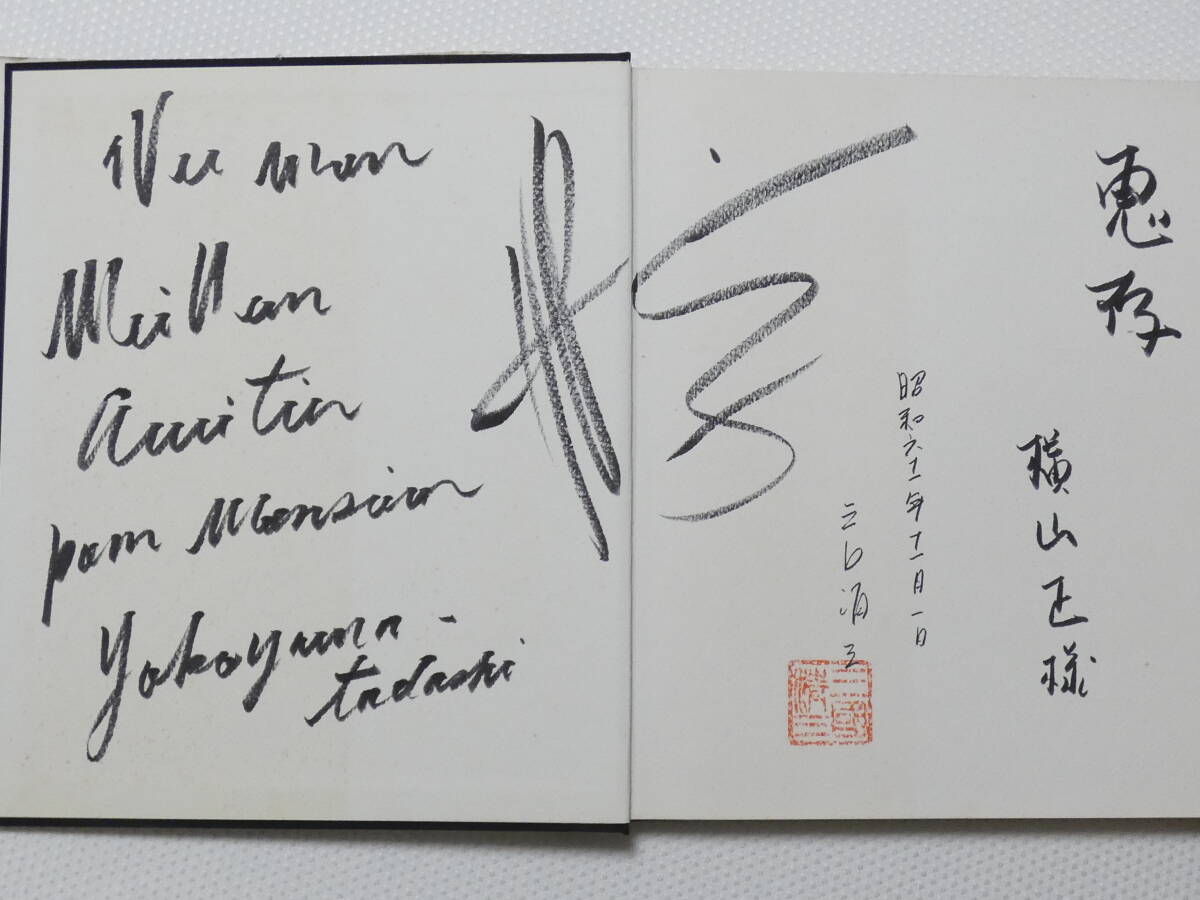 Avec mon
Meilleur
amitié
pour Monsieur
Yokoyama
tadashi
恵存
横山正様
昭和六十一年十一月一日
三国清三
三國清三